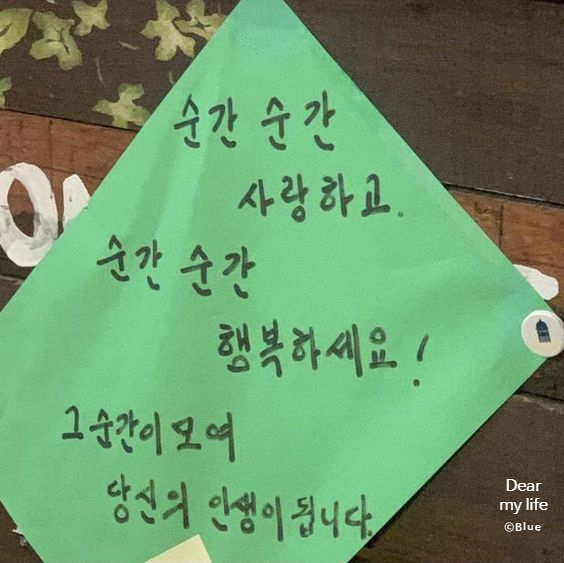 순간 순간
사랑하고.
순간 순간
행복하세요!
그 순간이 모여
당신의 인생이 됩니다.
Dear
my life
©Blue